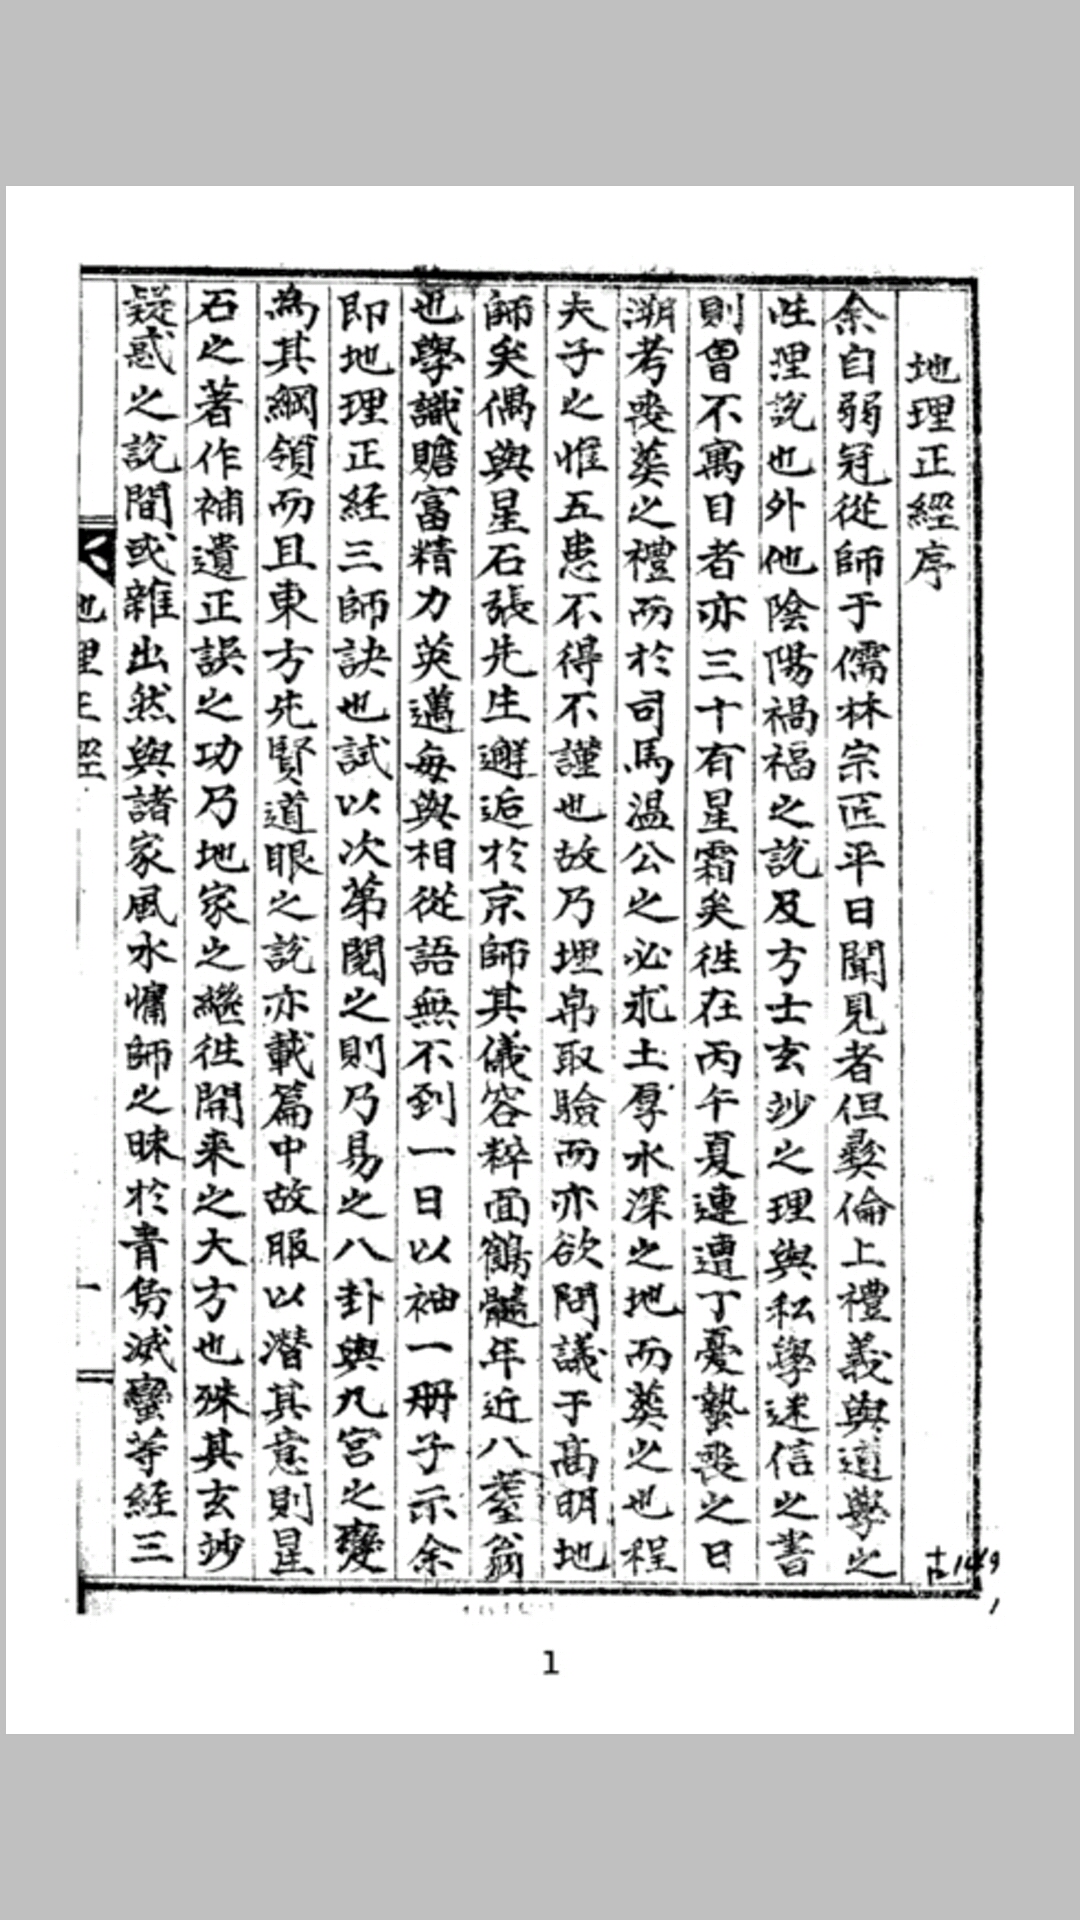 地理正經序
余自弱冠從師于儒林宗匠平日聞見者但彛倫上禮義與道學之
性理說也外他陰陽禍福之說及方士玄妙之理與私學迷信之書
則曾不寓目者亦三十有星霜矣徃在丙午夏連遭丁憂執喪之日
溯考喪葬之禮而於司馬溫公之必求土厚水深之地而葬之也程
夫子之惟五患不得不謹也故乃埋帛取驗而亦欲問議于高明地
師矣偶與星石張先生邂逅於京師其儀容粹面鶴髓年近八耋翁
也學識贍富精力英邁每與相從語無不到一日以袖一册子示余
即地理正経三師訣也試以次第閱之則乃易之八卦與九宮之變
為其綱領而且東方先賢道眼之說亦載篇中故服以潛其意則星
石之著作補遺正誤之功乃地家之繼徃開來之大方也殊其玄妙
疑惑之說間或雜出然與諸家風水慵師之昧於青烏滅蠻等経三
地理正經
一
古149
1
1